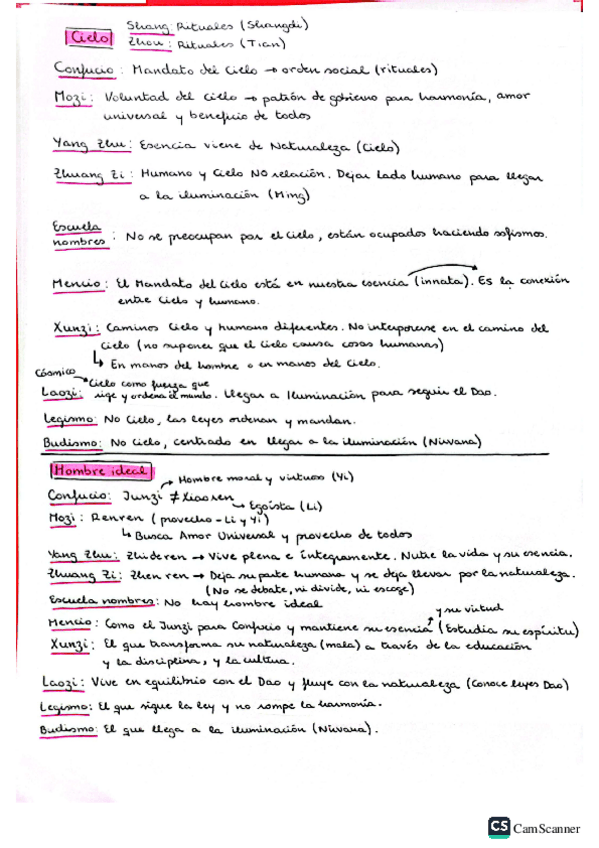 Cielo
Shang: Rituales (Shangdi)
Zhou: Rituales (Tian)
Confucio: Mandato del Cielo → orden social (rituales)
Mozi: Voluntad del Cielo → patrón de gobierno para harmonía, amor
universal y beneficio de todos
Yang Zhu: Esencia viene de Naturaleza (Cielo)
Zhuang Zi: Humano y Cielo NO relación. Dejar lado humano para llegar
a la iluminación (Ming)
Escuela
nombres: No se preocupan por el Cielo, están ocupados haciendo sofismos.
Mencio: El Mandato del Cielo está en nuestra esencia (innata). Es la conexión
entre Cielo y humano.
Xunzi: Caminos Cielo y humano diferentes. No interponerse en el camino del
cielo (no suponer que el Cielo causa cosas humanas)
↳ En manos del hombre o en manos del Cielo.
Cósmico
→ Cielo como fuerza que
Laozi: rige y ordena el mundo. Llegar a Iluminación para seguir el Dao.
Legismo: No Cielo, las leyes ordenan y mandan.
Budismo: No Cielo, centrado en llegar a la iluminación (Nirvana)
Hombre ideal
→ Hombre moral y virtuoso (Yi)
Confucio: Junzi ≠ Xiaoren
↳ Egoísta (Li)
Mozi: Renren (provecho - Li y Yi)
↳ Busca Amor Universal y provecho de todos
Yang Zhu: Zhideren → Vive plena e íntegramente. Nutre la vida y su esencia.
Zhuang Zi: Zhen ren → Deja su parte humana y se deja llevar por la naturaleza.
(No se debate, ni divide, ni escoge)
Escuela nombres: No hay hombre ideal
y su virtud
Mencio: Como el Junzi para Confucio y mantiene su esencia (Estudia su espíritu)
Xunzi: El que transforma su naturaleza (mala) a través de la educación
y la disciplina, y la cultura.
Laozi: Vive en equilibrio con el Dao y fluye con la naturaleza (Conoce leyes Dao)
Legismo: El que sigue la ley y no rompe la harmonía.
Budismo: El que llega a la iluminación (Nirvana).
CS CamScanner